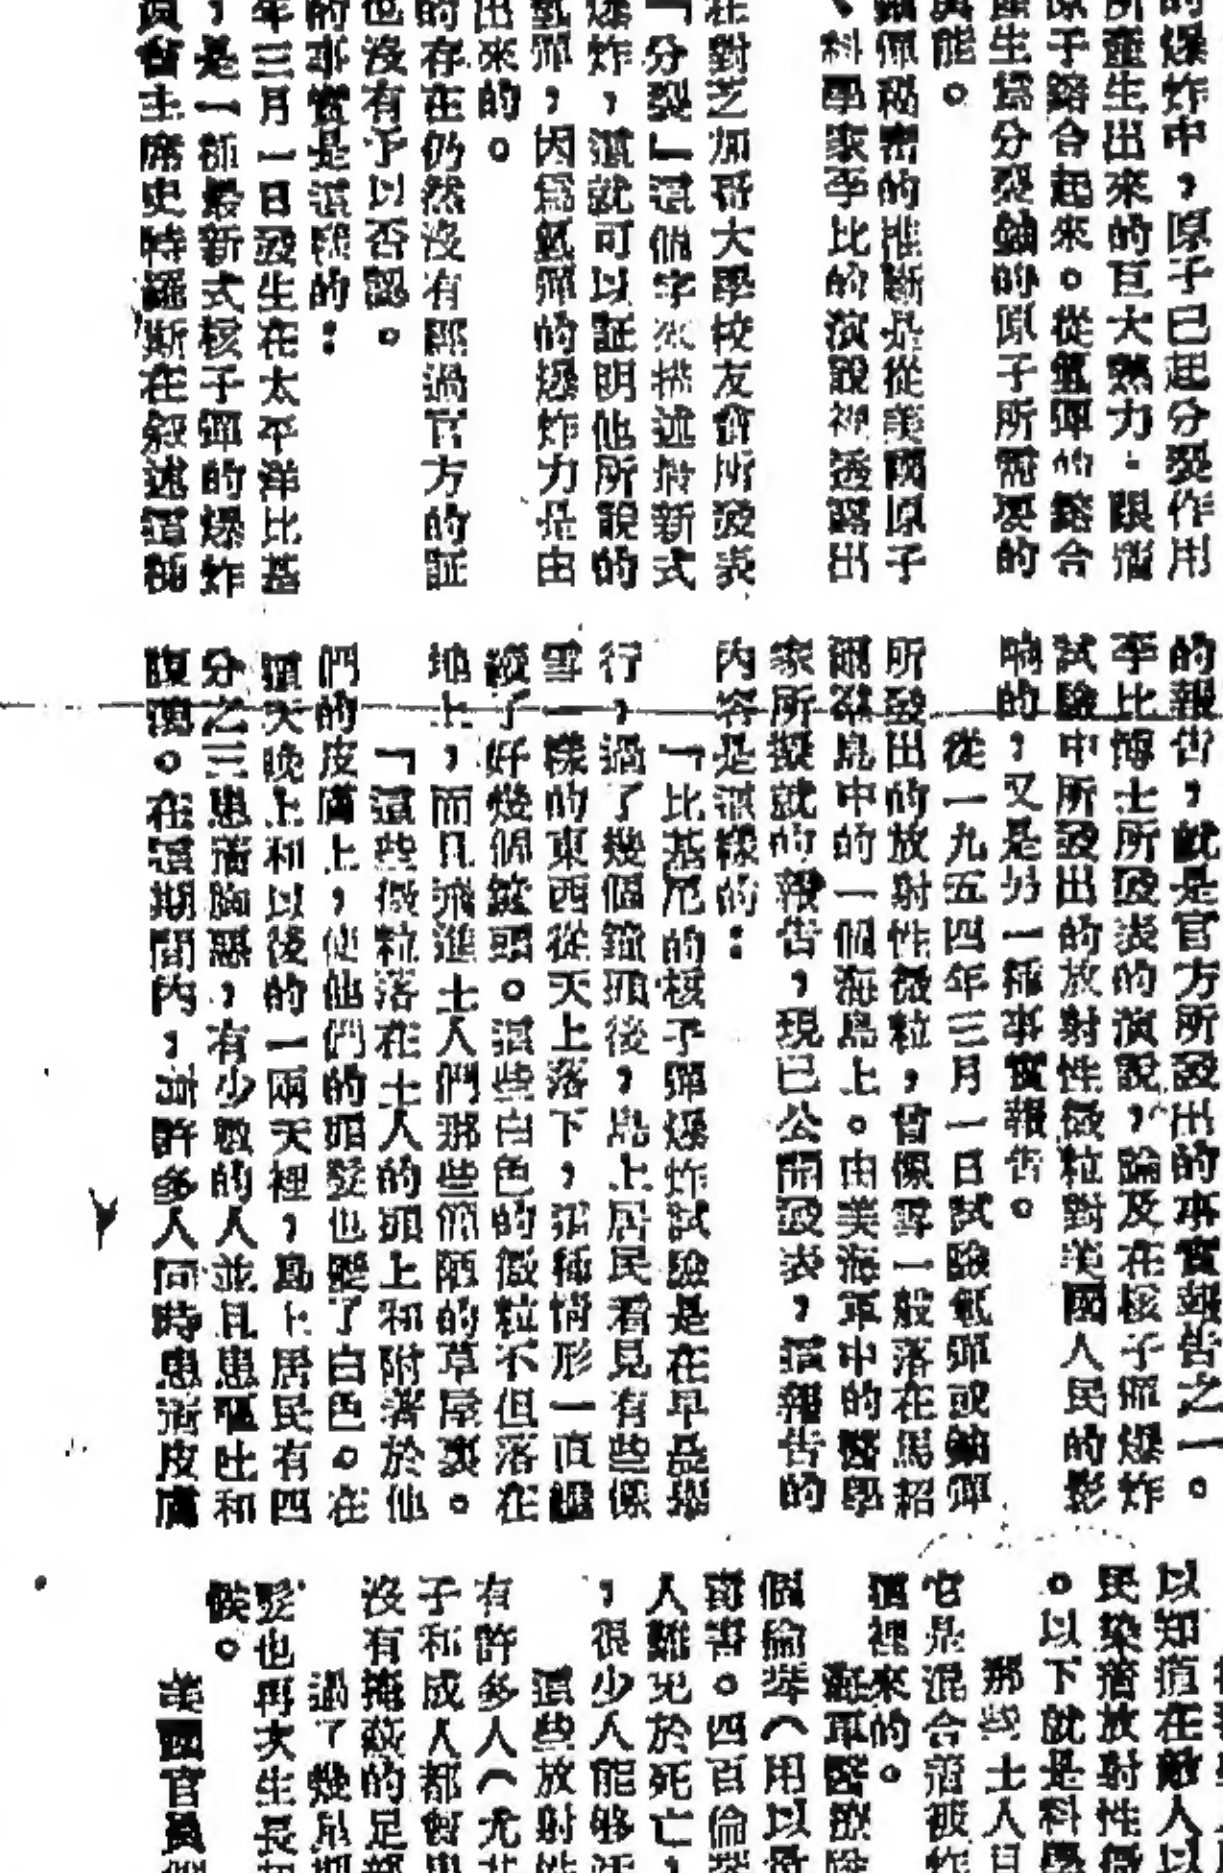 的爆炸中，原子已起分裂作用
所產生出來的巨大熱力，跟着
原子鎔合起來。從氫彈的鎔合
產生爲分裂鈾的原子所需要的
能。
佩秘密的推斷是從美國原子
、科學家李比的演說裡透露出
在對芝加哥大學校友會所發表
「分裂」這個字來描述指新式
爆炸，這就可以証明他所說的
氫彈，因爲氫彈的爆炸力是由
出來的。
的存在仍然沒有經過官方的証
也沒有予以否認。
的事實是這樣的：
年三月一日發生在太平洋比基
，是一顆最新式核子彈的爆炸
員會主席史特羅斯在敍述這種
的報告，就是官方所發出的事實報告之一。
李比博士所發表的演說，論及在核子彈爆炸
試驗中所發出的放射性微粒對美國人民的影
响的，又是另一種事實報告。
從一九五四年三月一日試驗氫彈或鈾彈
所發出的放射性微粒，曾像雪一般落在馬紹
爾羣島中的一個海島上。由美海軍中的醫學
家所擬就的報告，現已公開發表，該報告的
內容是這樣的：
「比基尼的核子彈爆炸試驗是在早晨舉
行，過了幾個鐘頭後，島上居民看見有些像
雪一樣的東西從天上落下，這種情形一直繼
續了好幾個鐘頭。這些白色的微粒不但落在
地上，而且飛進土人們那些簡陋的草屋裏。
「這些微粒落在土人的頭上和附着於他
們的皮膚上，使他們的頭髮也變了白色。在
這天晚上和以後的一兩天裡，島上居民有四
分之三患着胸惡，有少數的人並且患嘔吐和
腹瀉。在這期間內，許多人同時患着皮膚
以知道在敵人以
民染着放射性微
。以下就是科學
那些土人目
它是混合着被炸
這裡來的。
海軍醫
個倫琴（用以
害。四百倫琴
人難免於死亡，
，很少人能够活
這些放射性
有許多人（尤其
子和成人都曾患
沒有掩蔽的足部
過了幾星期
髮也再次生長
候。
美國官員們